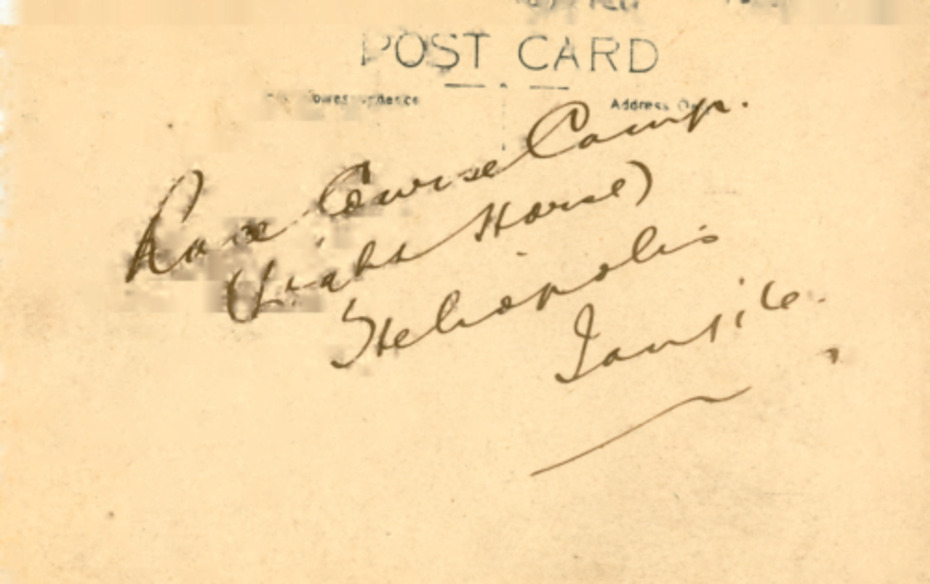 POST CARD
Correspondence
Address Only
Race Course Camp.
(Light Horse)
Heliopolis
Jany 16.